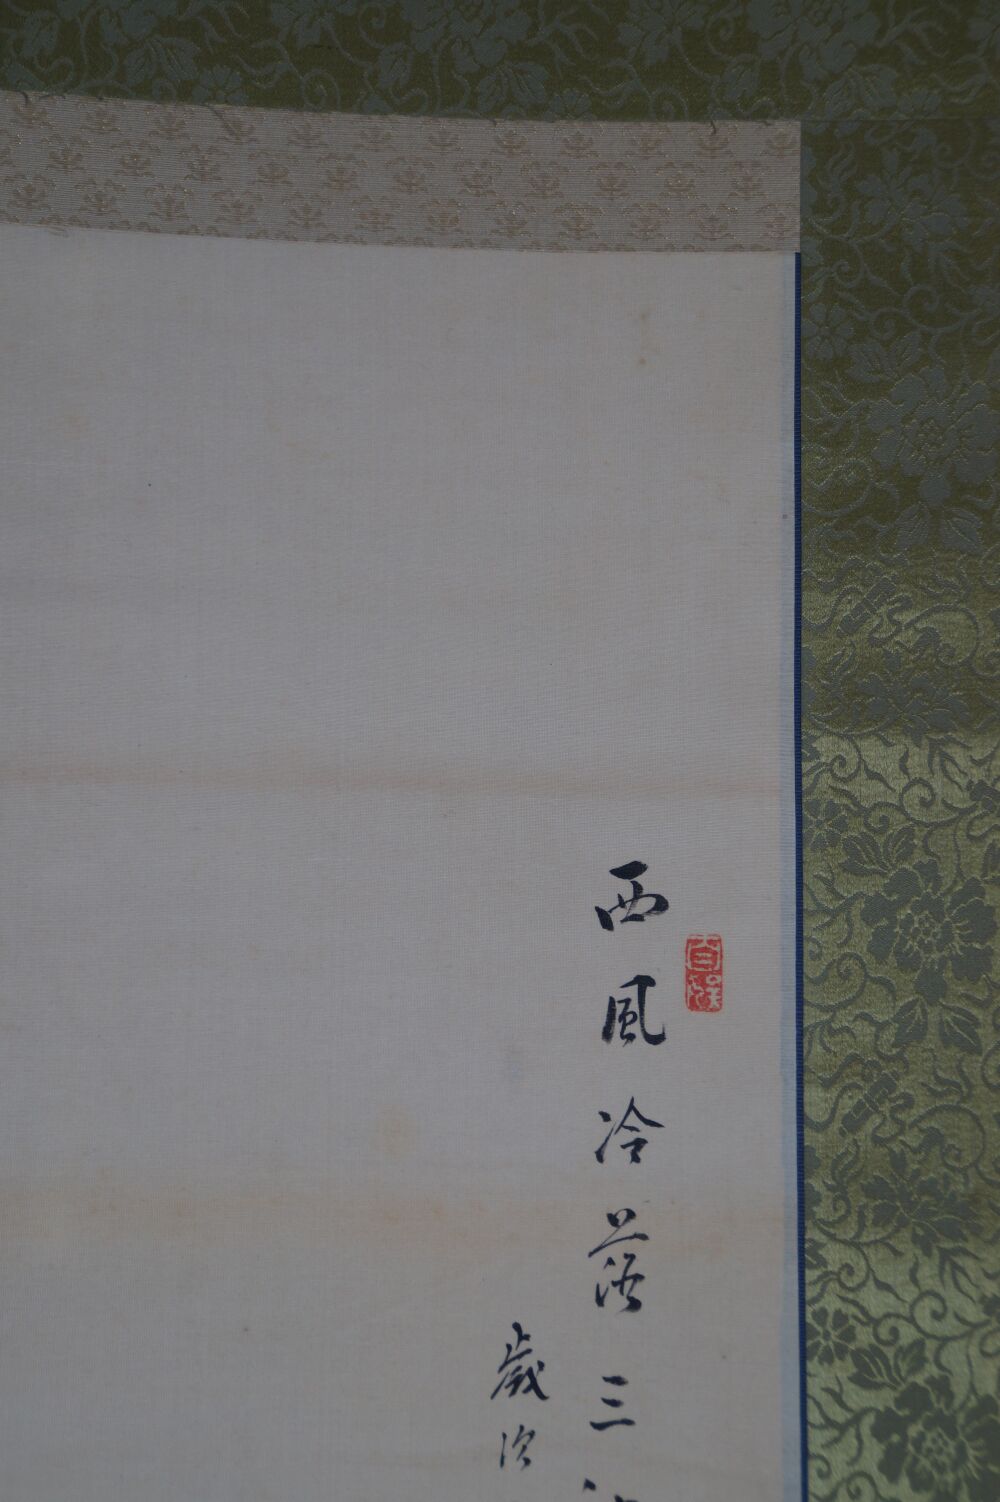 西風冷落三
歲次